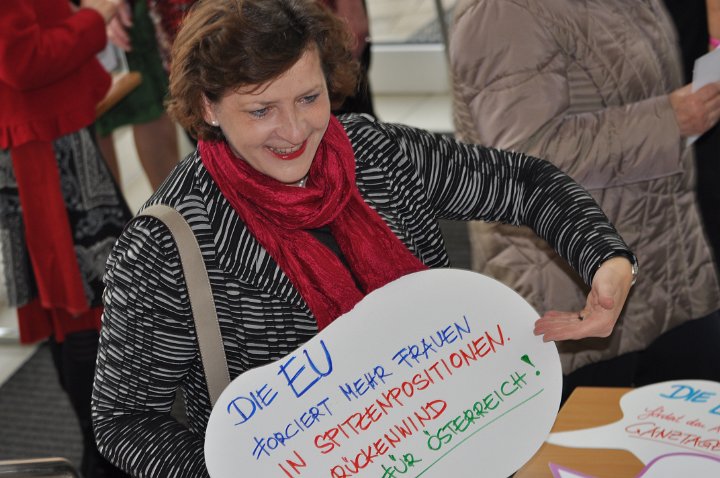 DIE EU
FORCIERT MEHR FRAUEN
IN SPITZENPOSITIONEN.
RÜCKENWIND
FÜR ÖSTERREICH!
DIE
GANZTAGE